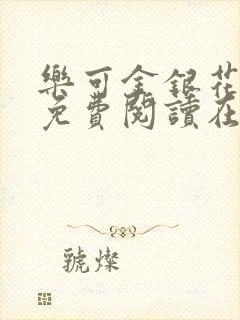 樂可金銀花
免費閱讀在
號燦